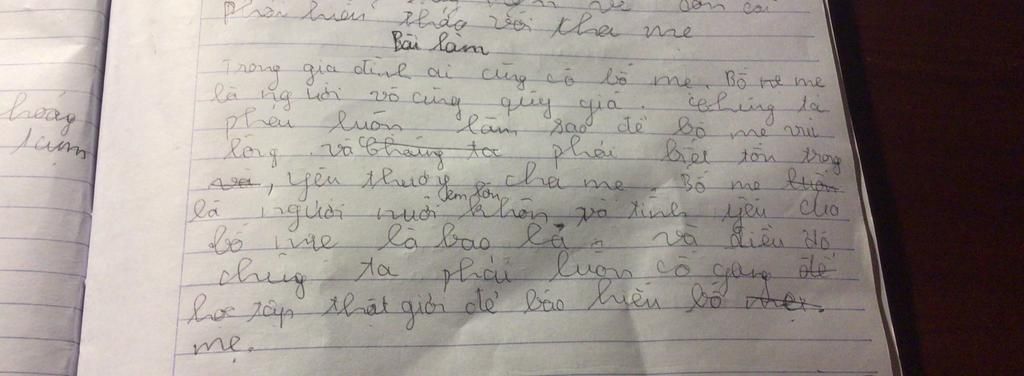 phải luôn thảo với cha mẹ
Bài làm
Trong gia đình ai cũng có bố mẹ. Bố mẹ
là người vô cùng quý giá. Chúng ta
phải luôn làm sao để bố mẹ vui
lòng và chúng ta phải biết tôn trọng
và, yêu thương cha mẹ. Bố mẹ luôn
là người nuôi khôn và tình yêu cho
bố mẹ là bao la. và điều đó
chúng ta phải luôn cố gắng để
học tập thật giỏi để báo hiếu bố
mẹ.